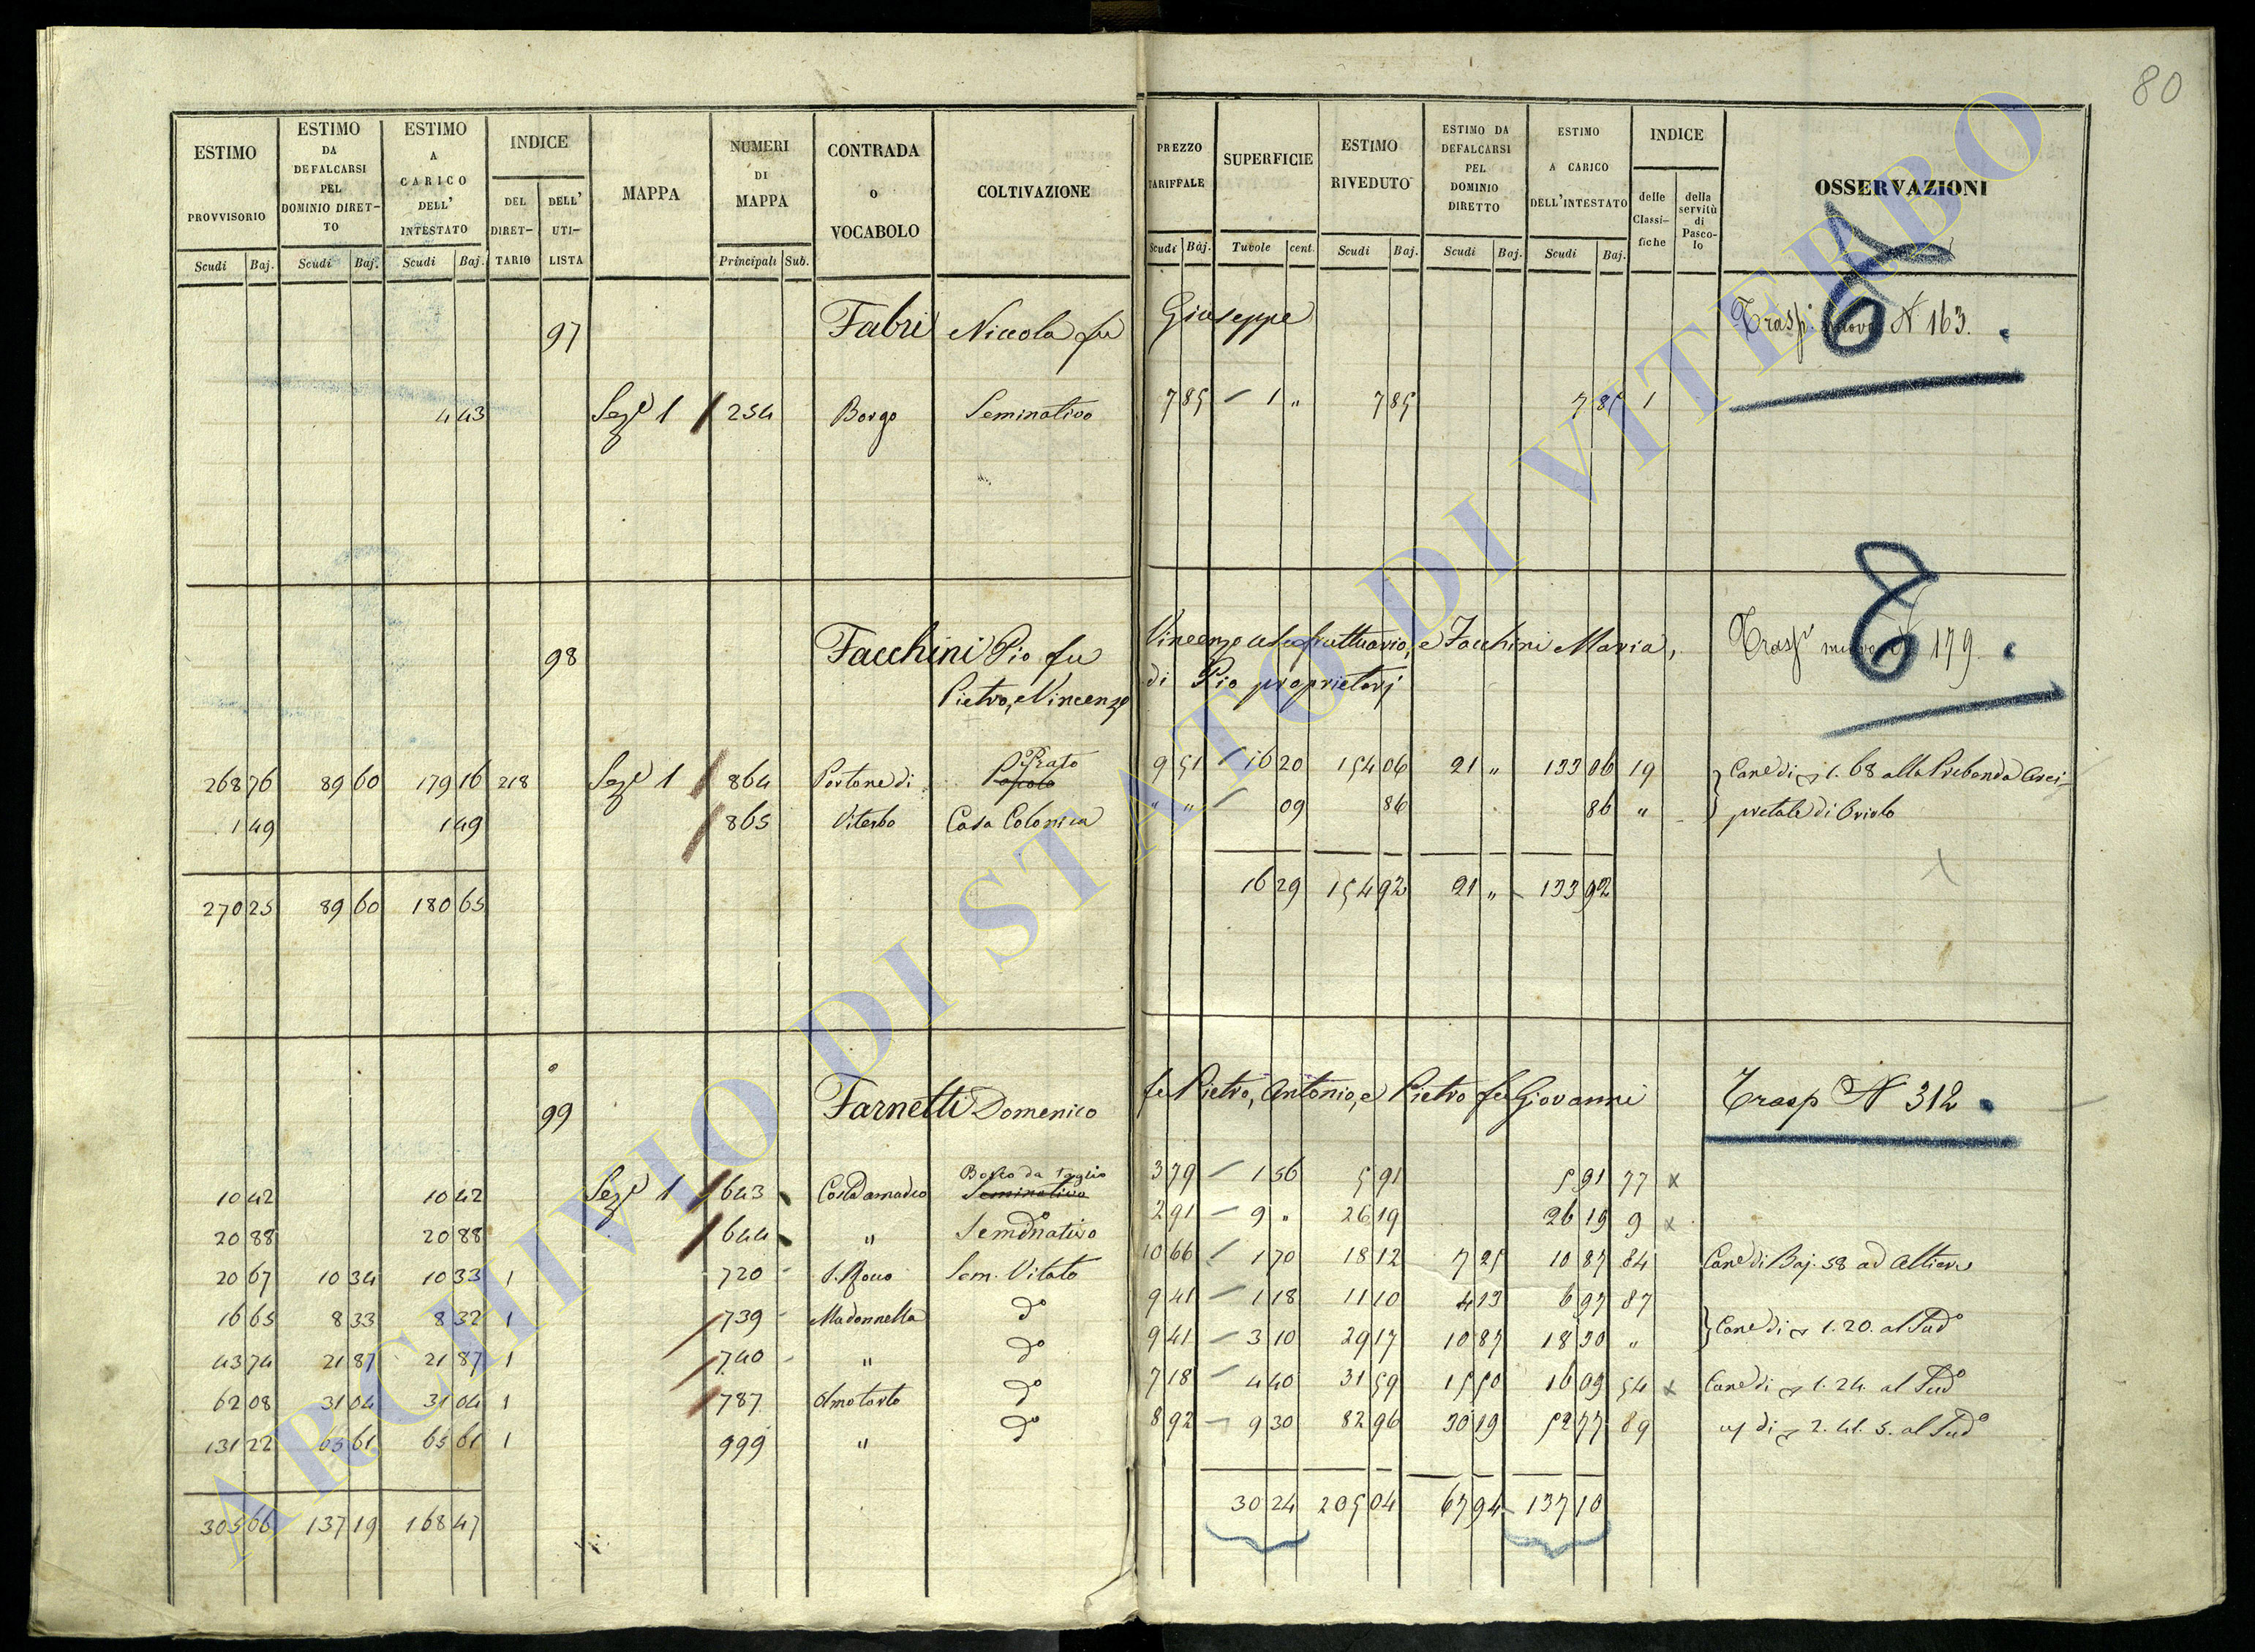 80
ESTIMO PROVVISORIO Scudi Baj.
ESTIMO DA DEFALCARSI PEL DOMINIO DIRET-TO Scudi Baj.
ESTIMO A CARICO DELL' INTESTATO Scudi Baj.
INDICE DEL DIRET-TARIO DELL' UTI-LISTA
MAPPA
NUMERI DI MAPPA Principali Sub.
CONTRADA o VOCABOLO
COLTIVAZIONE
PREZZO TARIFFALE Scudi Baj.
SUPERFICIE Tavole cent.
ESTIMO RIVEDUTO Scudi Baj.
ESTIMO DA DEFALCARSI PEL DOMINIO DIRETTO Scudi Baj.
ESTIMO A CARICO DELL'INTESTATO Scudi Baj.
INDICE delle Classi-fiche della servitù di Pasco-lo
OSSERVAZIONI
97 Fabri Niccola fu Giuseppe Trasp. N 163.
4 43 Seze 1 254 Borgo Seminativo 7 85 1 " 7 85 7 85 1
98 Facchini Pio fu Vincenzo usufruttuario, e Facchini Maria, 179
Pietro, e Vincenzo di Pio proprietarj
268 76 89 60 179 16 218 Seze 1 864 Portone di Prato 9 51 16 20 154 06 21 " 133 06 19 Cane di 1. 68 alla Prebenda Arci-
1 49 1 49 865 Viterbo Casa Colonica " " 09 86 86 " pretale di Oriolo
16 29 154 92 21 " 133 92
270 25 89 60 180 65
99 Farnetti Domenico fu Pietro, Antonio, e Pietro fu Giovanni Trasp N 312
10 42 10 42 Seze 1 643 Costa amadeo Bosco da taglio Seminativo 3 79 1 56 5 91 5 91 77 x
20 88 20 88 644 " Seminativo 2 91 9 " 26 19 26 19 9 x
20 67 10 34 10 33 1 720 S. Rocco Sem. Vitato 10 66 1 70 18 12 7 25 10 87 84 Cane di Baj. 58 ad Altieri
16 65 8 33 8 32 1 739 Madonnella do 9 41 1 18 11 10 4 13 6 97 87
43 74 21 87 21 87 1 740 " do 9 41 3 10 29 17 10 87 18 30 " Cane di 1. 20. al Sudo
62 08 31 04 31 04 1 787 Olmo torto do 7 18 4 40 31 59 15 50 16 09 54 x Cane di 1. 24. al Sudo
131 22 65 61 65 61 1 999 " do 8 92 9 30 82 96 30 19 52 77 89 di 2. 41. 5. al Sudo
30 24 205 04 67 94 137 10
305 66 137 19 168 47
ARCHIVIO DI STATO DI VITERBO